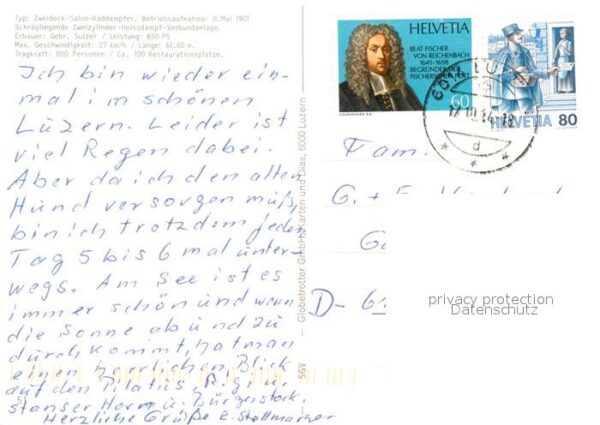 Typ: Zweideck-Salon-Raddampfer. Betriebsaufnahme: 8.Mai 1901
Schrägliegende Zweizylinder-Heissdampf-Verbundanlage,
Erbauer: Gebr. Sulzer / Leistung: 650 PS
Max. Geschwindigkeit: 27 km/h / Länge: 61.80 m.
Tragkraft: 800 Personen / Ca. 100 Restaurationsplätze.
Ich bin wieder ein-
mal im schönen
Luzern. Leider ist
viel Regen dabei.
Aber da ich den alten
Hund versorgen muß,
bin ich trotzdem jeden
Tag 5 bis 6 mal unter-
wegs. Am See ist es
immer schön und wenn
die Sonne ab und zu
durchkommt, hat man
einen herrlichen Blick
auf den Pilatus, Rigi u.
stanser Horm u. Bürgenstock.
Herzliche Grüße E. Stellmacher
Globetrotter GmbH, Karten und Dias, 6000 Luzern
HELVETIA
BEAT FISCHER
VON REICHENBACH
1641-1698
BEGRÜNDER DER
FISCHERSCHEN POST
60
HELVETIA 80
d
Fam.
G. + E.
D-61
privacy protection
Datenschutz